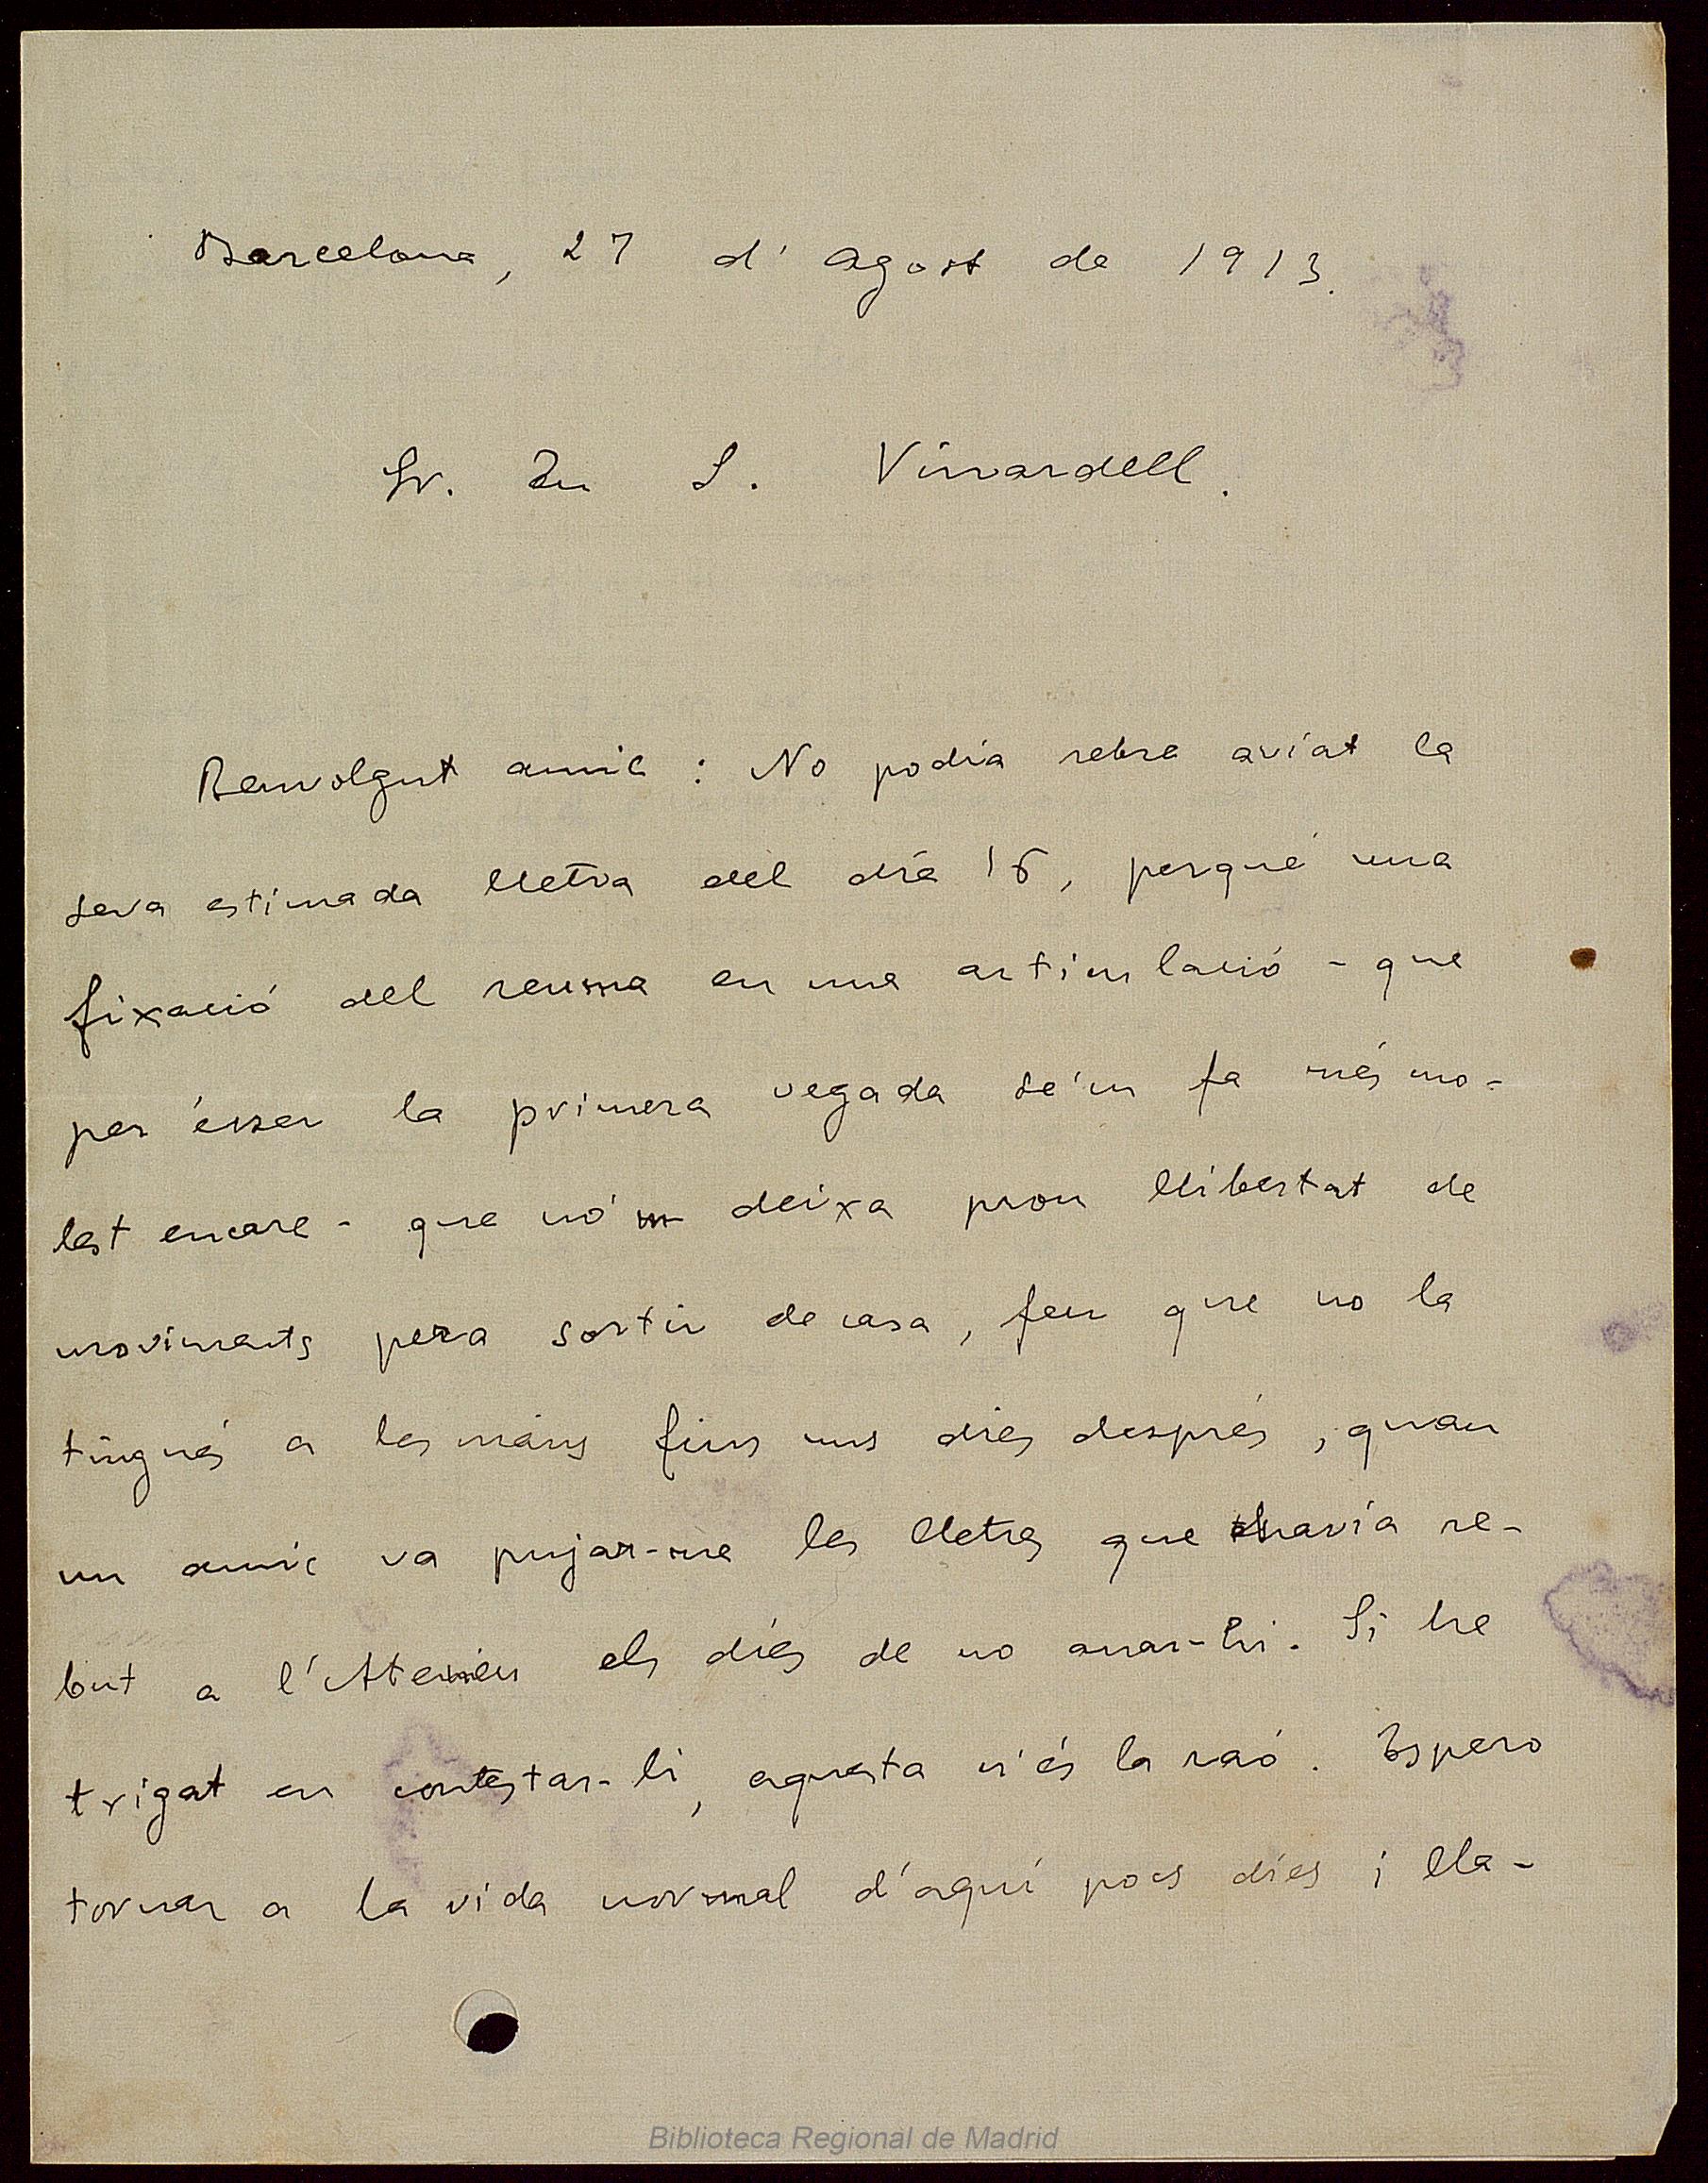 Barcelona, 27 d'Agost de 1913.
Sr. En S. Vinardell.
Benvolgut amic: No podía rebre aviat la
seva estimada lletra del día 15, perquè una
fixació del reuma en una articulació - que
per ésser la primera vegada se'm fa més mo-
lest encare - que no'm deixa prou llibertat de
moviments pera sortir de casa, feu que no la
tingués a les mans fins uns díes després, quan
un amic va pujar-me les lletres que havía re-
but a l'Ateneu els díes de no anar-hi. Si he
trigat en contestar-li, aquesta n'és la raó. Espero
tornar a la vida normal d'aquí pocs díes i lla-
Biblioteca Regional de Madrid